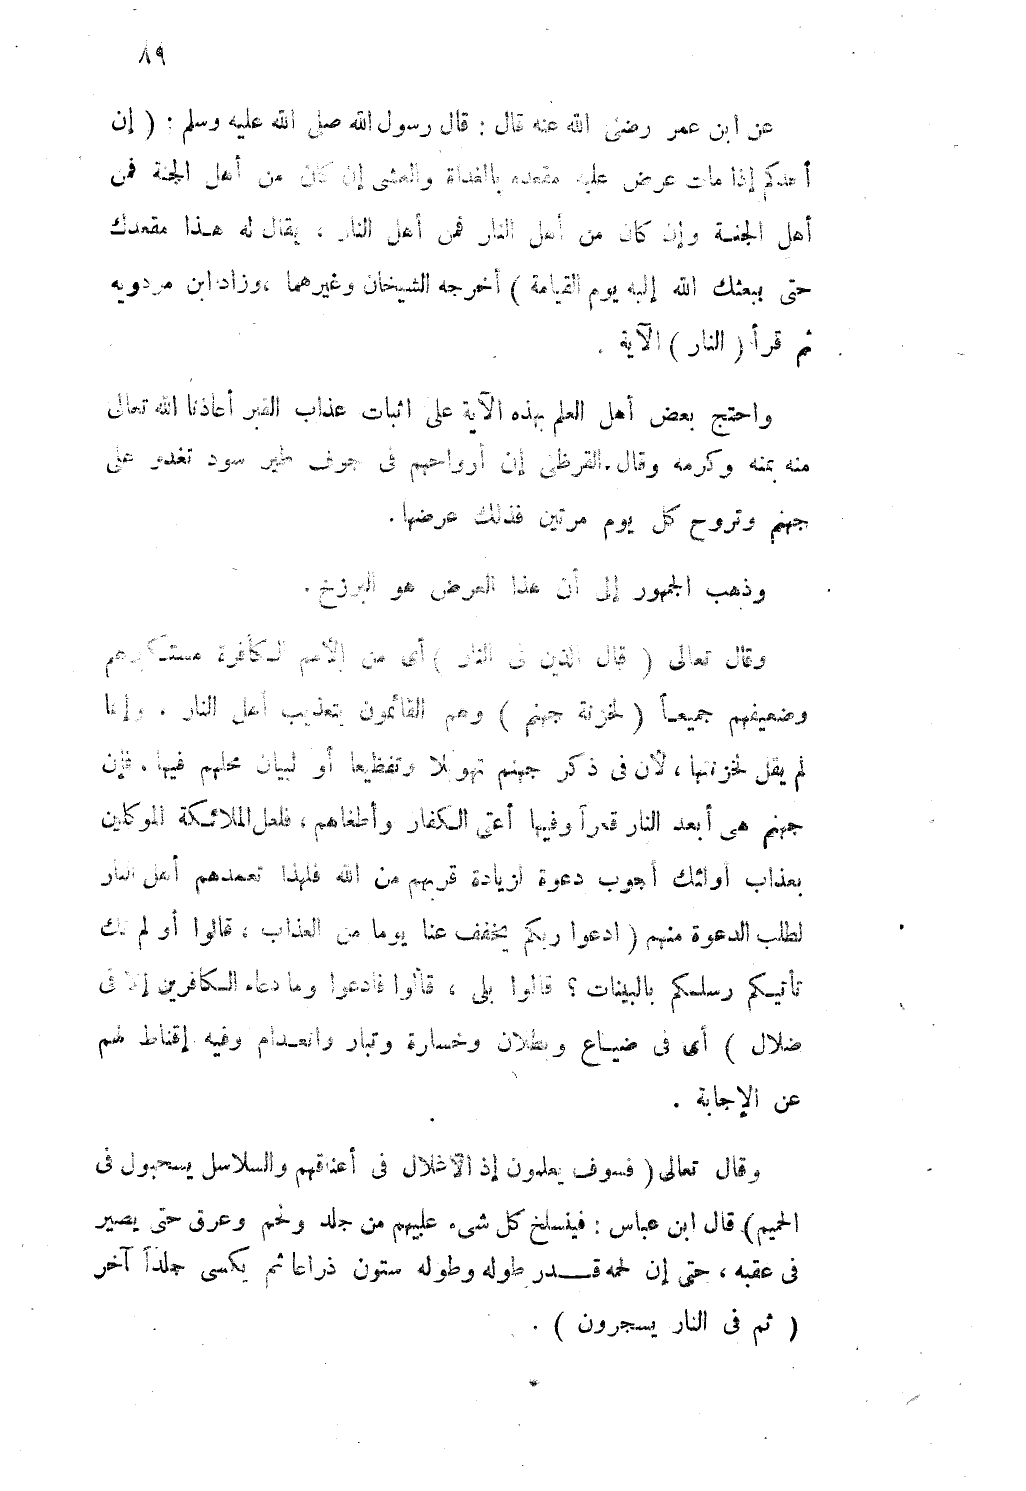 ٨٩
عن ابن عمر رضى الله عنه قال : قال رسول الله صلى الله عليه وسلم : ( إن
أحدكم إذا مات عرض عليه مقعده بالغداة والعشى إن كان من أهل الجنة فمن
أهل الجنة وإن كان من أهل النار فمن أهل النار ، يقال له هذا مقعدك
حتى يبعثك الله إليه يوم القيامة ) أخرجه الشيخان وغيرهما ، وزاد ابن مردويه
ثم قرأ ( النار ) الآية .
واحتج بعض أهل العلم بهذه الآية على اثبات عذاب القبر أعاذنا الله تعالى
منه بمنه وكرمه وقال القرظى إن أرواحهم فى جوف طير سود تغدو على
جهنم وتروح كل يوم مرتين فذلك عرضها .
وذهب الجمهور إلى أن هذا العرض هو البرزخ .
وقال تعالى ( قال الذين فى النار ) أى من الأمم الكافرة مستكبرهم
وضعيفهم جميعاً ( لخزنة جهنم ) وهم القائمون بتعذيب أهل النار . وإنما
لم يقل لخزنتها ، لأن فى ذكر جهنم تهويلا وتفظيعا أو لبيان محلهم فيها . فإن
جهنم هى أبعد النار قعراً وفيها أعتى الكفار وأطغاهم ، فلعل الملائكة الموكلين
بعذاب أولئك أجوب دعوة لزيادة قربهم من الله فلهذا تعمدهم أهل النار
لطلب الدعوة منهم ( ادعوا ربكم يخفف عنا يوما من العذاب ، قالوا أو لم تك
تأتيكم رسلكم بالبينات ؟ قالوا بلى ، قالوا فادعوا وما دعاء الكافرين إلا فى
ضلال ) أى فى ضياع وبطلان وخسارة وتبار وانعدام وفيه إقناط لهم
عن الإجابة .
وقال تعالى ( فسوف يعلمون إذ الأغلال فى أعناقهم والسلاسل يسحبول فى
الحميم ) قال ابن عباس : فينسلخ كل شىء عليهم من جلد ولحم وعرق حتى يصير
فى عقبه ، حتى إن لحمه قدر طوله وطوله ستون ذراعا ثم يكسى جلداً آخر
( ثم فى النار يسجرون ) .